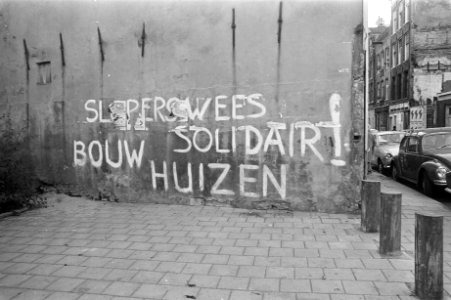 SLOPERS WEES
SOLIDAIR!
BOUW HUIZEN